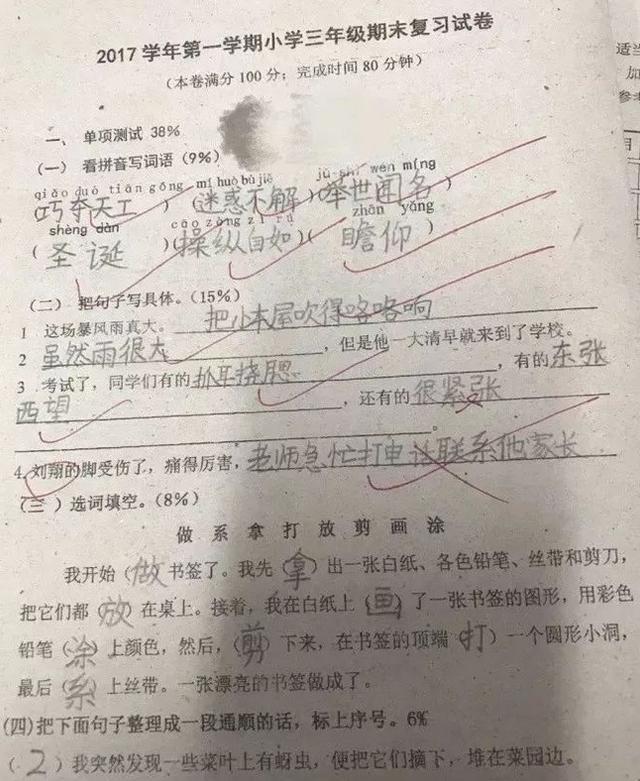 2017 学年第一学期小学三年级期末复习试卷
(本卷满分 100 分;完成时间 80 分钟)
适当
加
参考
一、 单项测试 38%
(一) 看拼音写词语(9%)
qiǎo duó tiān gōng mí huò bù jiě jǔ shì wén míng
巧夺天工 )(迷惑不解)(举世闻名)
shèng dàn cāo zòng zì rú zhān yǎng
( 圣诞 )(操纵自如)( 瞻仰 )
(二) 把句子写具体。(15%)
1 这场暴风雨真大。 把小木屋吹得咯咯响
2 虽然雨很大 ,但是他一大清早就来到了学校。
3 考试了,同学们有的扒耳挠腮 ,有的东张
西望 ,还有的很紧张
。
4. 刘翔的脚受伤了,痛得厉害,老师急忙打电话联系他家长
(三)选词填空。(8%)
做 系 拿 打 放 剪 画 涂
我开始(做)书签了。我先(拿)出一张白纸、各色铅笔、丝带和剪刀,
把它们都(放)在桌上。接着,我在白纸上(画)了一张书签的图形,用彩色
铅笔(涂)上颜色,然后,(剪)下来,在书签的顶端(打)一个圆形小洞,
最后(系)上丝带。一张漂亮的书签做成了。
(四)把下面句子整理成一段通顺的话,标上序号。6%
( 2 )我突然发现一些菜叶上有蚜虫,便把它们摘下,堆在菜园边。